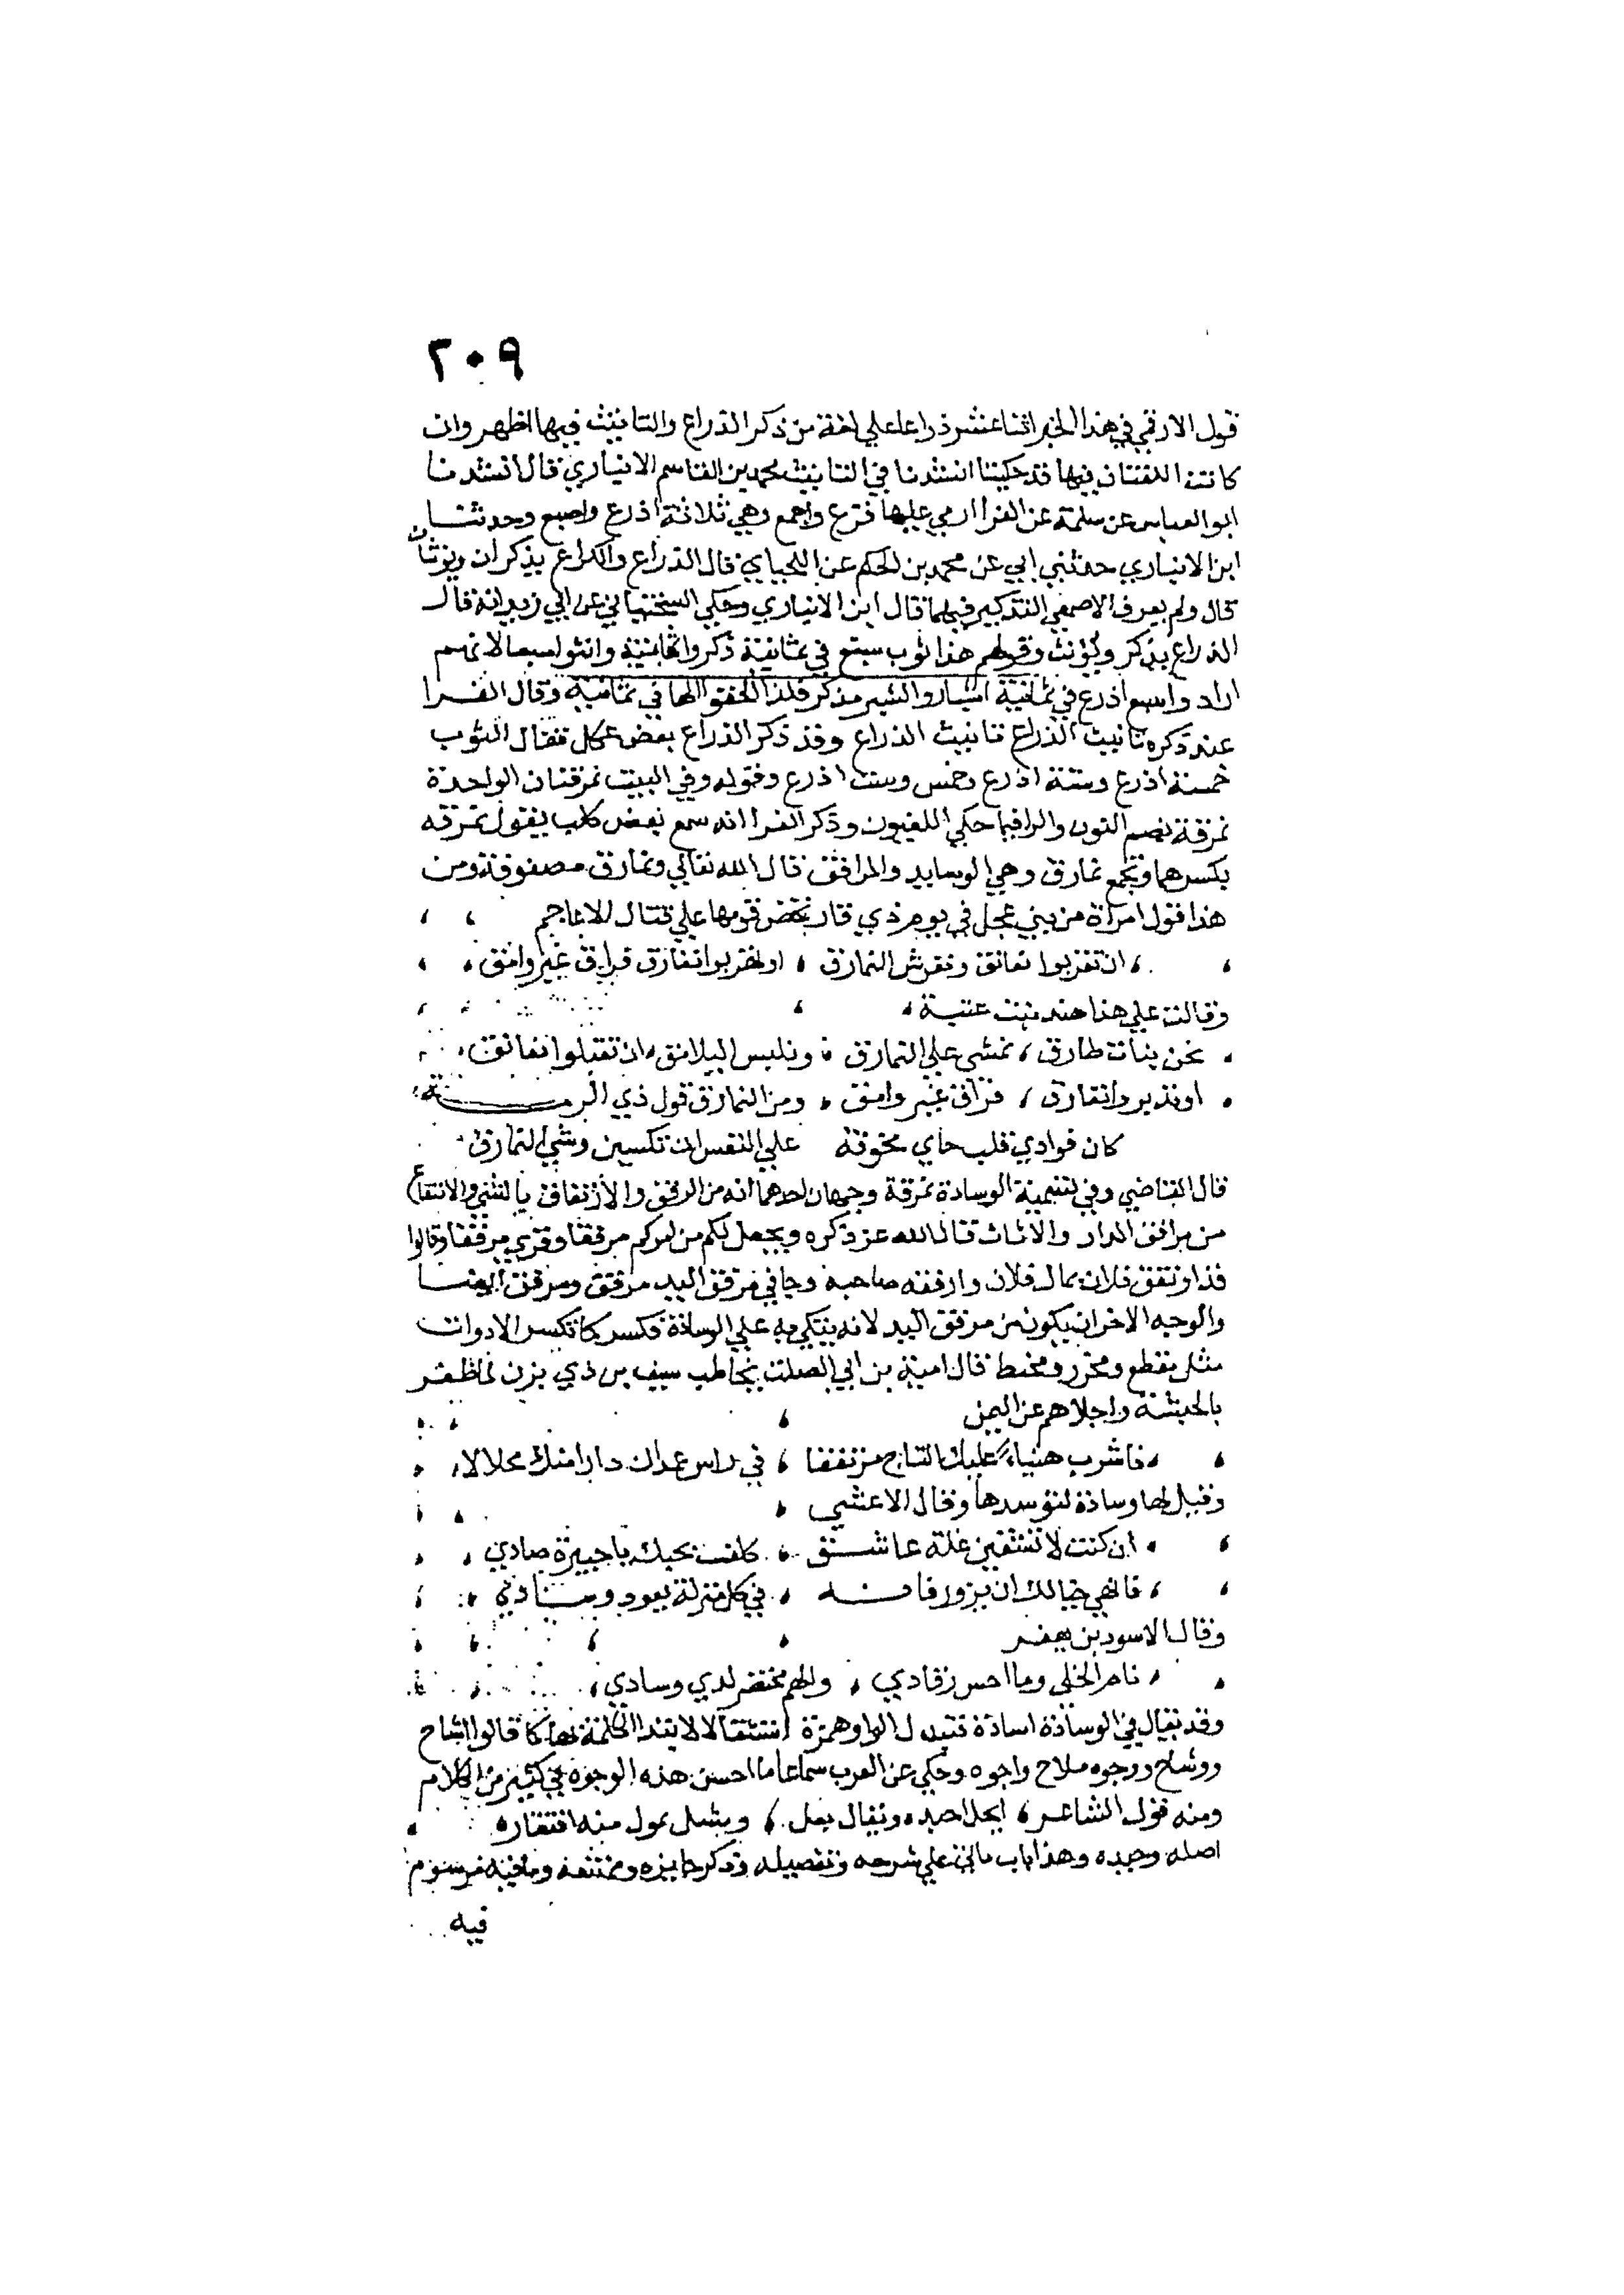 ٢٠٩
قول الارقمي في هذا الخبر اثنا عشر ذراعا علي لغة من ذكر الذراع والتانيث فيها اظهر وان
كانت اللغتان فيها قد حكيتا انشدنا في التانيث محمد بن القاسم الانباري قال انشدنا
ابو العباس عن سلمة عن الفرا ارمي عليها فرع واجمع وهي ثلاثة اذرع واصبع وحدثنا
ابن الانباري حدثني ابي عن محمد بن الحكم عن اللحياي قال الذراع والكراع يذكران ويؤنثان
قال ولم يعرف الاصمعي التذكير فيهما قال ابن الانباري وحكي السختياني عن ابي زيد انه قال
الذراع يذكر ويؤنث وقولهم هذا ثوب سبع في ثمانية ذكروا الثمانية وانثوا سبعا لانهم
اراد واسبع اذرع في ثمانية اشبار والشبر مذكر فلذا الحقوا الها في ثمانية وقال الفرا
عند ذكره تانيث الذراع تانيث الذراع وقد ذكر الذراع بعض عكل فقال الثوب
خمسة اذرع وستة اذرع وخمس وست اذرع وقوله وفي البيت نمرقتان الواحدة
نمرقة بضم النون والرا فيما حكي اللغيون وذكر الفرا انه سمع بعض كلب يقول نمرقه
بكسرهما وتجمع نمارق وهي الوسايد والمرافق قال الله تعالي ونمارق مصفوفة ومن
هذا قول امراة من بني عجل في يوم ذي قار تحض قومها علي قتال الاعاجم
ان تقربوا نعانق ونفرش النمارق ، او تهربوا نفارق فراق غير وامق ،
وقالت علي هذا هند بنت عتبة ،
نحن بنات طارق ، نمشي علي النمارق ، ونلبس اليلامق ، ان تقبلوا نعانق ،
او تدبروا نفارق ، فراق غير وامق ، ومن النمارق قول ذي الرمة
كان فوادي قلب جاي مخوفة علي النفس ان تكسين وشي النمارق
قال القاضي وفي تسمية الوسادة نمرقة وجهان احدهما انه من الرفق والارتفاق بالشي والانتفاع
من مرافق الدار والاثاث قال الله عز ذكره ويجعل لكم من امركم مرفقا وقري مرفقا وقالوا
قد ارتفق فلان بمال فلان وارفقه صاحبه وجا في مرفق اليد مرفق ومرفق ايضا
والوجه الاخر ان يكون من مرفق اليد لانه يتكي به علي الوسادة فكسر كما تكسر الادوات
مثل مقطع ومخرز ومخيط قال امية بن ابي الصلت يخاطب سيف بن ذي يزن لما ظفر
بالحبشة واجلاهم عن اليمن
فاشرب هنياء عليك التاج مرتفقا ، في راس غمدان دارا منك محلالا ،
وقيل لها وسادة لتوسدها وقال الاعشي
ان كنت لا تشفين غلة عاشق ، كلف بحبك يا جبيرة صادي ،
فانهي خيالك ان يزور فانه ، في كل منزلة يعود وسادي
وقال الاسود بن يعفر
نام الخلي وما احس رقادي ، والهم محتضر لدي وسادي ،
وقد يقال في الوسادة اسادة فتبدل الواو همزة استثقالا لابتدا الكلمة بها كما قالوا اشاح
ووشاح ووجوه ملاح واجوه وحكي عن العرب سماعا ما احسن هذه الوجوه في كثير من الكلام
ومنه قول الشاعر ، احده ويقال بعل ، منه افتقاره
اصله وحده وهذا باب علي شرحه وتفصيله وذكر جايزه وممتنعه وما فيه مرسوم
فيه